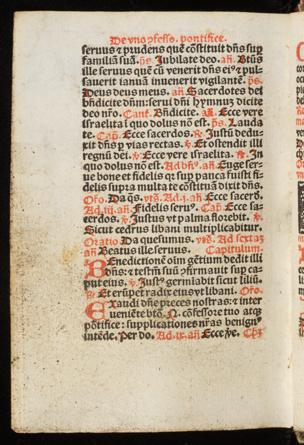 De vno ꝯfesso. pontifice.
seruus ⁊ prudens quē cōstituit dñs sup
familiā suā. p̄s. Jubilate deo. añ. Btūs
ille seruus quē cū venerit dñs ei⁹ ⁊ pul-
sauerit ianuā inuenerit vigilantē. p̄s.
Deus deus meus. añ Sacerdotes dei
bñdicite dñm: serui dñi hymnuȝ dicite
deo nr̄o. Cant. Bñdicite. añ. Ecce vere
israelita ī quo dolus nō est. p̄s. Lauda
te. Cap̄. Ecce sacerdos. ℟. Justū dedu-
xit dñs ꝑ vias rectas. ℣. Et ostendit illi
regnū dei. ℣. Ecce vere israelita. ℟. In
quo dolus nō est. Ad bñ⁹. añ Euge ser-
ue bone et fidelis qȝ sup pauca fuisti fi-
delis supra multa te cōstituā dixit dñs.
Oro. Da q̄s. Ad .i. añ. Ecce sacerd.
Ad .iii. añ Fidelis seru⁹. Cap̄. Ecce sa-
cerdos. ℟. Justus vt palma florebit. ℣.
Sicut cedrus libani multiplicabitur.
Oratio Da quesumus. Ad sextaȝ
añ Beatus ille seruus. Capitulum.
Benedictionē oim gētium dedit illi
dñs: ⁊ testm̄ suū ꝯfirmauit sup ca-
put eius. ℟. Just⁹ germīabit sicut liliū.
℟. Et erūpet radix eius vt libani. Oro.
Exaudi dñe preces nostras: ⁊ inter
ueniēte btō. N. cōfessore tuo atqȝ
pōtifice: supplicationes nr̄as benign⁹
intēde. Per do. Ad .ix. añ Ecce